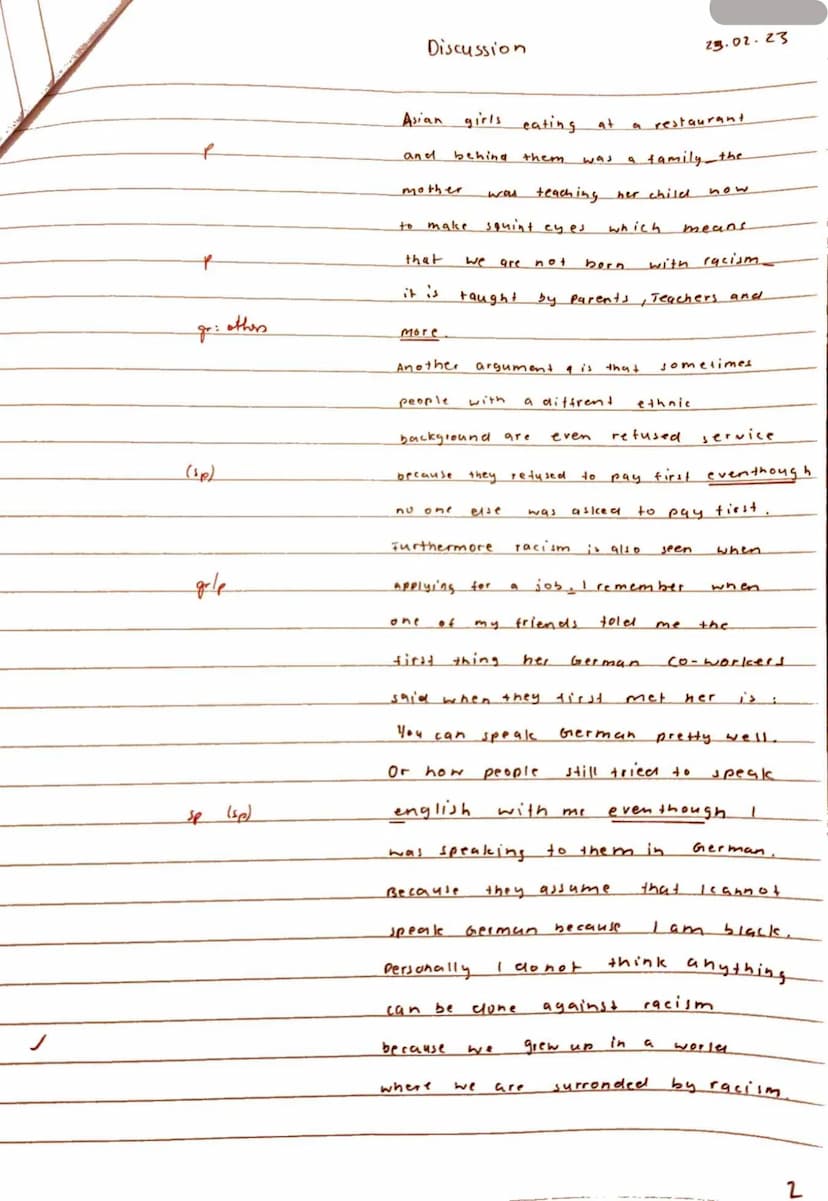 Discussion 23.02.23
Asian girls eating at a restaurant
p and behind them was a family the
mother was teaching her child how
to make squint eyes which means
p that we are not born with racism
it is taught by parents, Teachers and
gr: others more.
Another argument is that sometimes
people with a diffrent ethnic
background are even refused service
(sp) because they refused to pay first eventhough
no one else was asked to pay first.
Furthermore racism is also seen when
gr/p applying for a job. I remember when
one of my friends told me the
first thing her German co-workers
said when they first met her is :
You can speak German pretty well.
Or how people still tried to speak
sp (sp) english with me eventhough I
was speaking to them in German.
Because they assume that I cannot
speak German because I am black.
Personally I do not think anything
can be done against racism
because we grew up in a world
where we are surronded by racism.
2